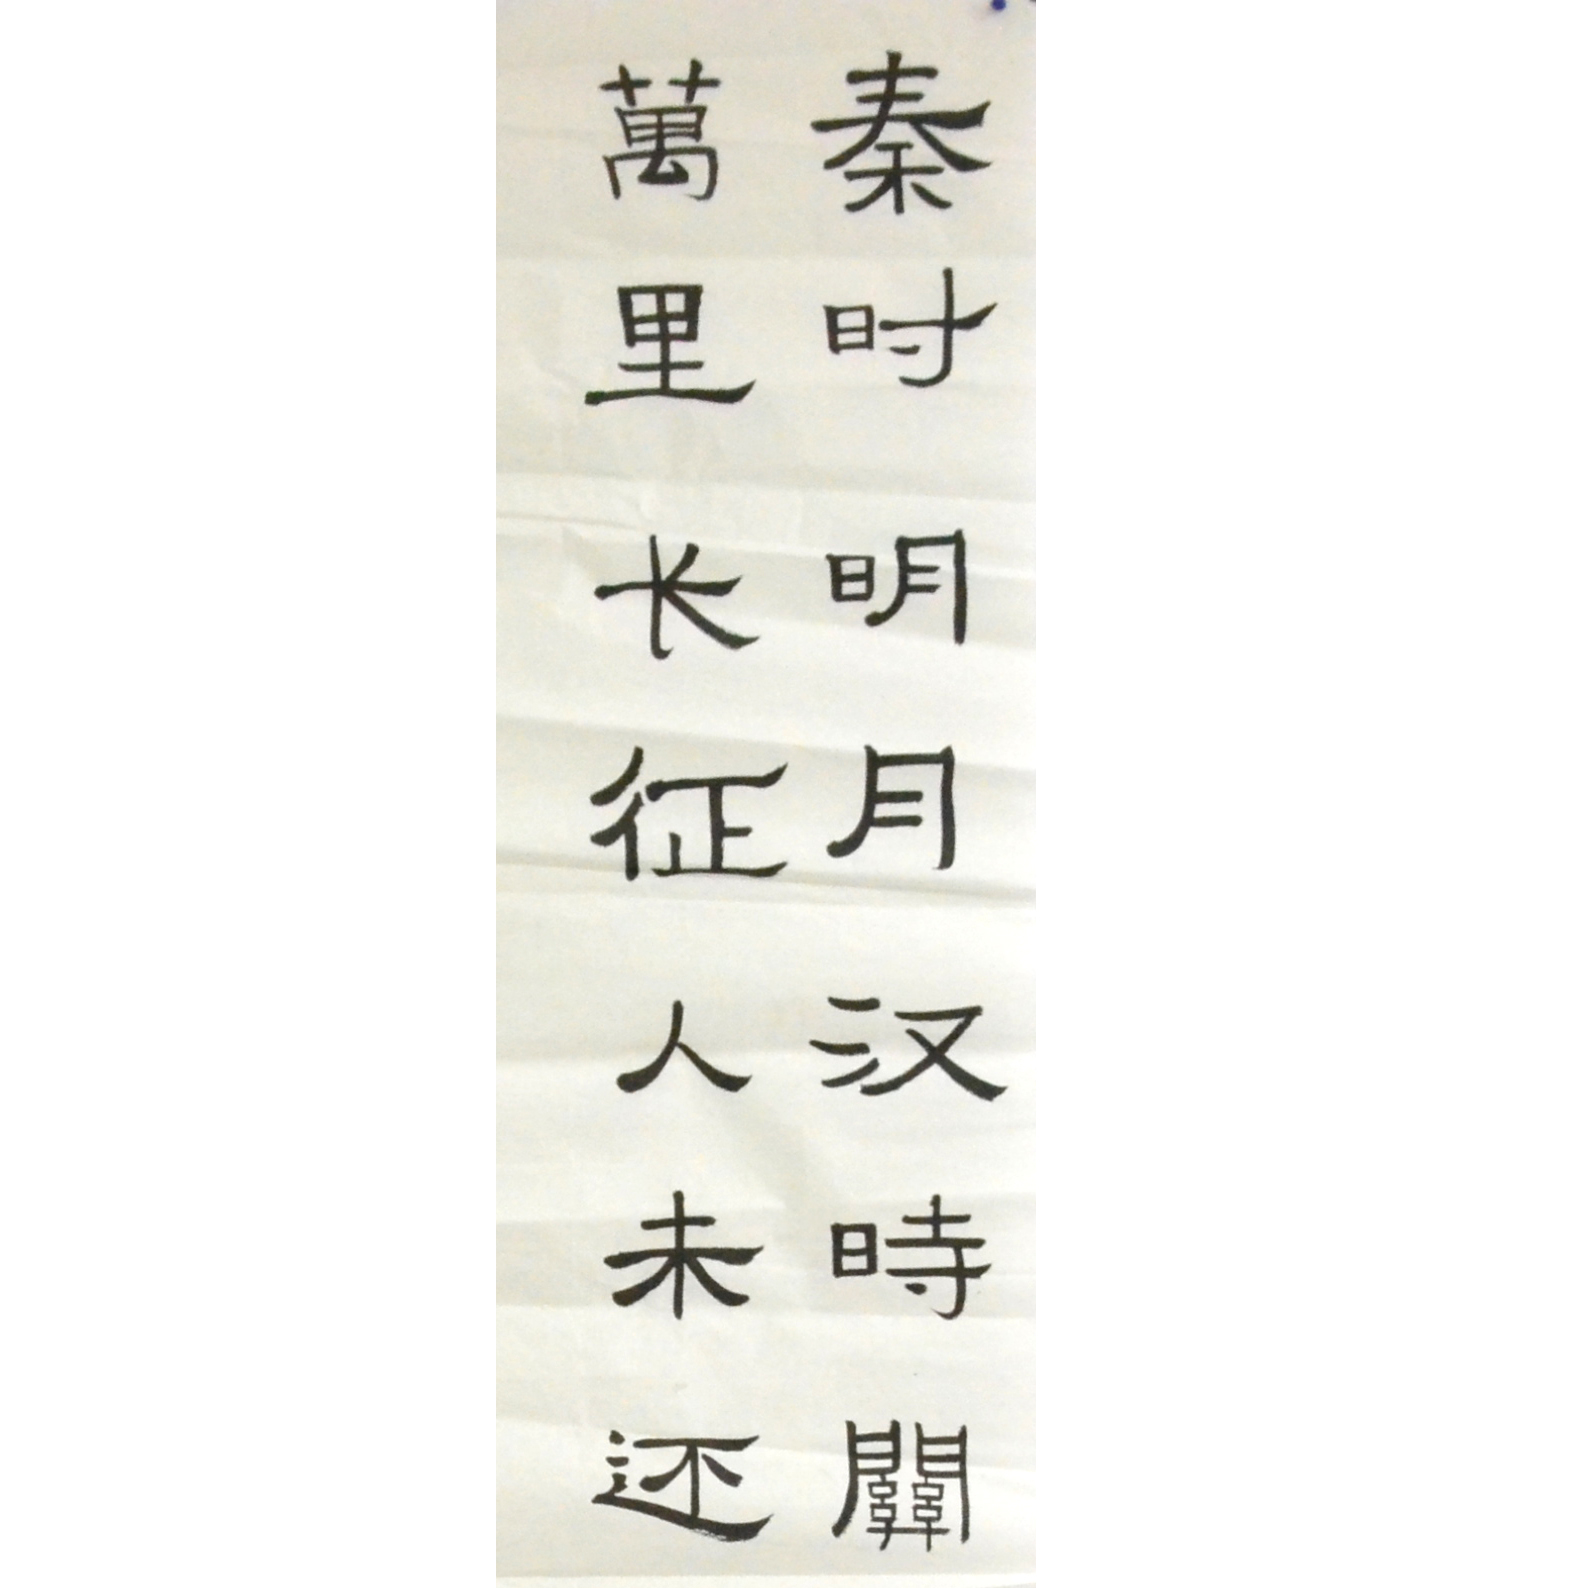 秦时明月汉時關
萬里长征人未还